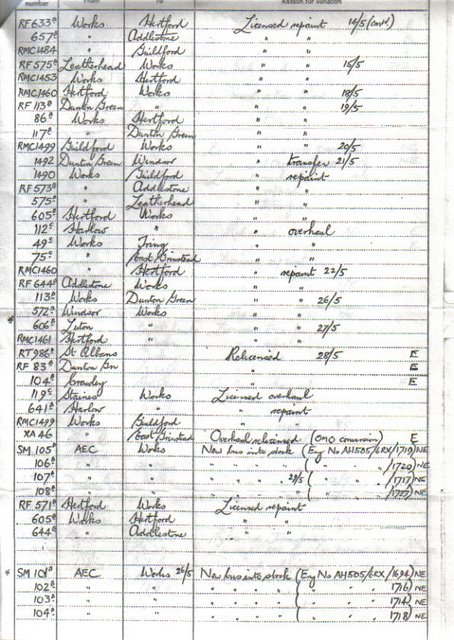 number From To Reason for variation
RF 633 Works Hertford Licensed repaint 14/5 (cont)
657 " Addlestone " "
RMC1484 " Guildford " "
RF 575 Leatherhead Works " " 15/5
RMC1453 Works Hertford " "
RMC1460 Hertford Works " " 18/5
RF 113 Dunton Green " " " 19/5
86 Works Hertford " "
117 " Dunton Green " "
RMC1499 Guildford Works " " 20/5
1492 Dunton Green Windsor " transfer 21/5
1490 Works Guildford " repaint
RF 573 " Addlestone " "
575 " Leatherhead " "
605 Hertford Works " "
112 Harlow " " overhaul
49 Works Tring " "
75 " East Grinstead " "
RMC1460 " Hertford " repaint 22/5
RF 644 Addlestone Works " "
113 Works Dunton Green " " 26/5
572 Windsor Works " "
606 Luton " " " 27/5
RMC1461 Hertford " " "
RT 986 St Albans Relicensed 28/5 E
RF 83 Dunton Gn " E
104 Crawley " E
119 Staines Works Licensed overhaul
641 Harlow " " repaint
RMC1499 Works Guildford " "
XA 46 East Grinstead Overhaul relicensed (OMO conversion) E
SM 105 AEC Works New bus into stock (Eng No AH505/6RX/1719) NE
106 " " " " " " ( " " " /1720) NE
107 " " " " " " 29/5 ( " " " /1717) NE
108 " " " " " " ( " " " /1727) NE
RF 571 Hertford Works Licensed repaint
605 Works Hertford " "
644 " Addlestone " "
* SM 101 AEC Works 26/5 New bus into stock (Eng No AH505/6RX/1696) NE
102 " " " " " " ( " " " 1716) NE
103 " " " " " " ( " " " 1714) NE
104 " " " " " " ( " " " 1718) NE